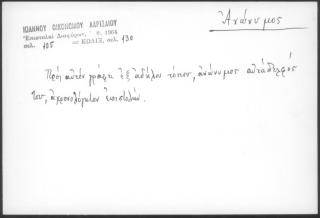 Ἀνώνυμος
ΙΩΑΝΝΟΥ ΟΙΚΟΝΟΜΟΥ ΛΑΡΙΣΑΙΟΥ
Ἐπιστολαὶ Διαφόρων, 1964
σελ. 105 — ΚΩΔΙΞ, σελ. 130
Πρὸς αὐτὸν γράφει ἐξ ἀδήλου τόπου, ἀνώνυμος αὐτάδελφός
του, ἀχρονολόγητον ἐπιστολήν.